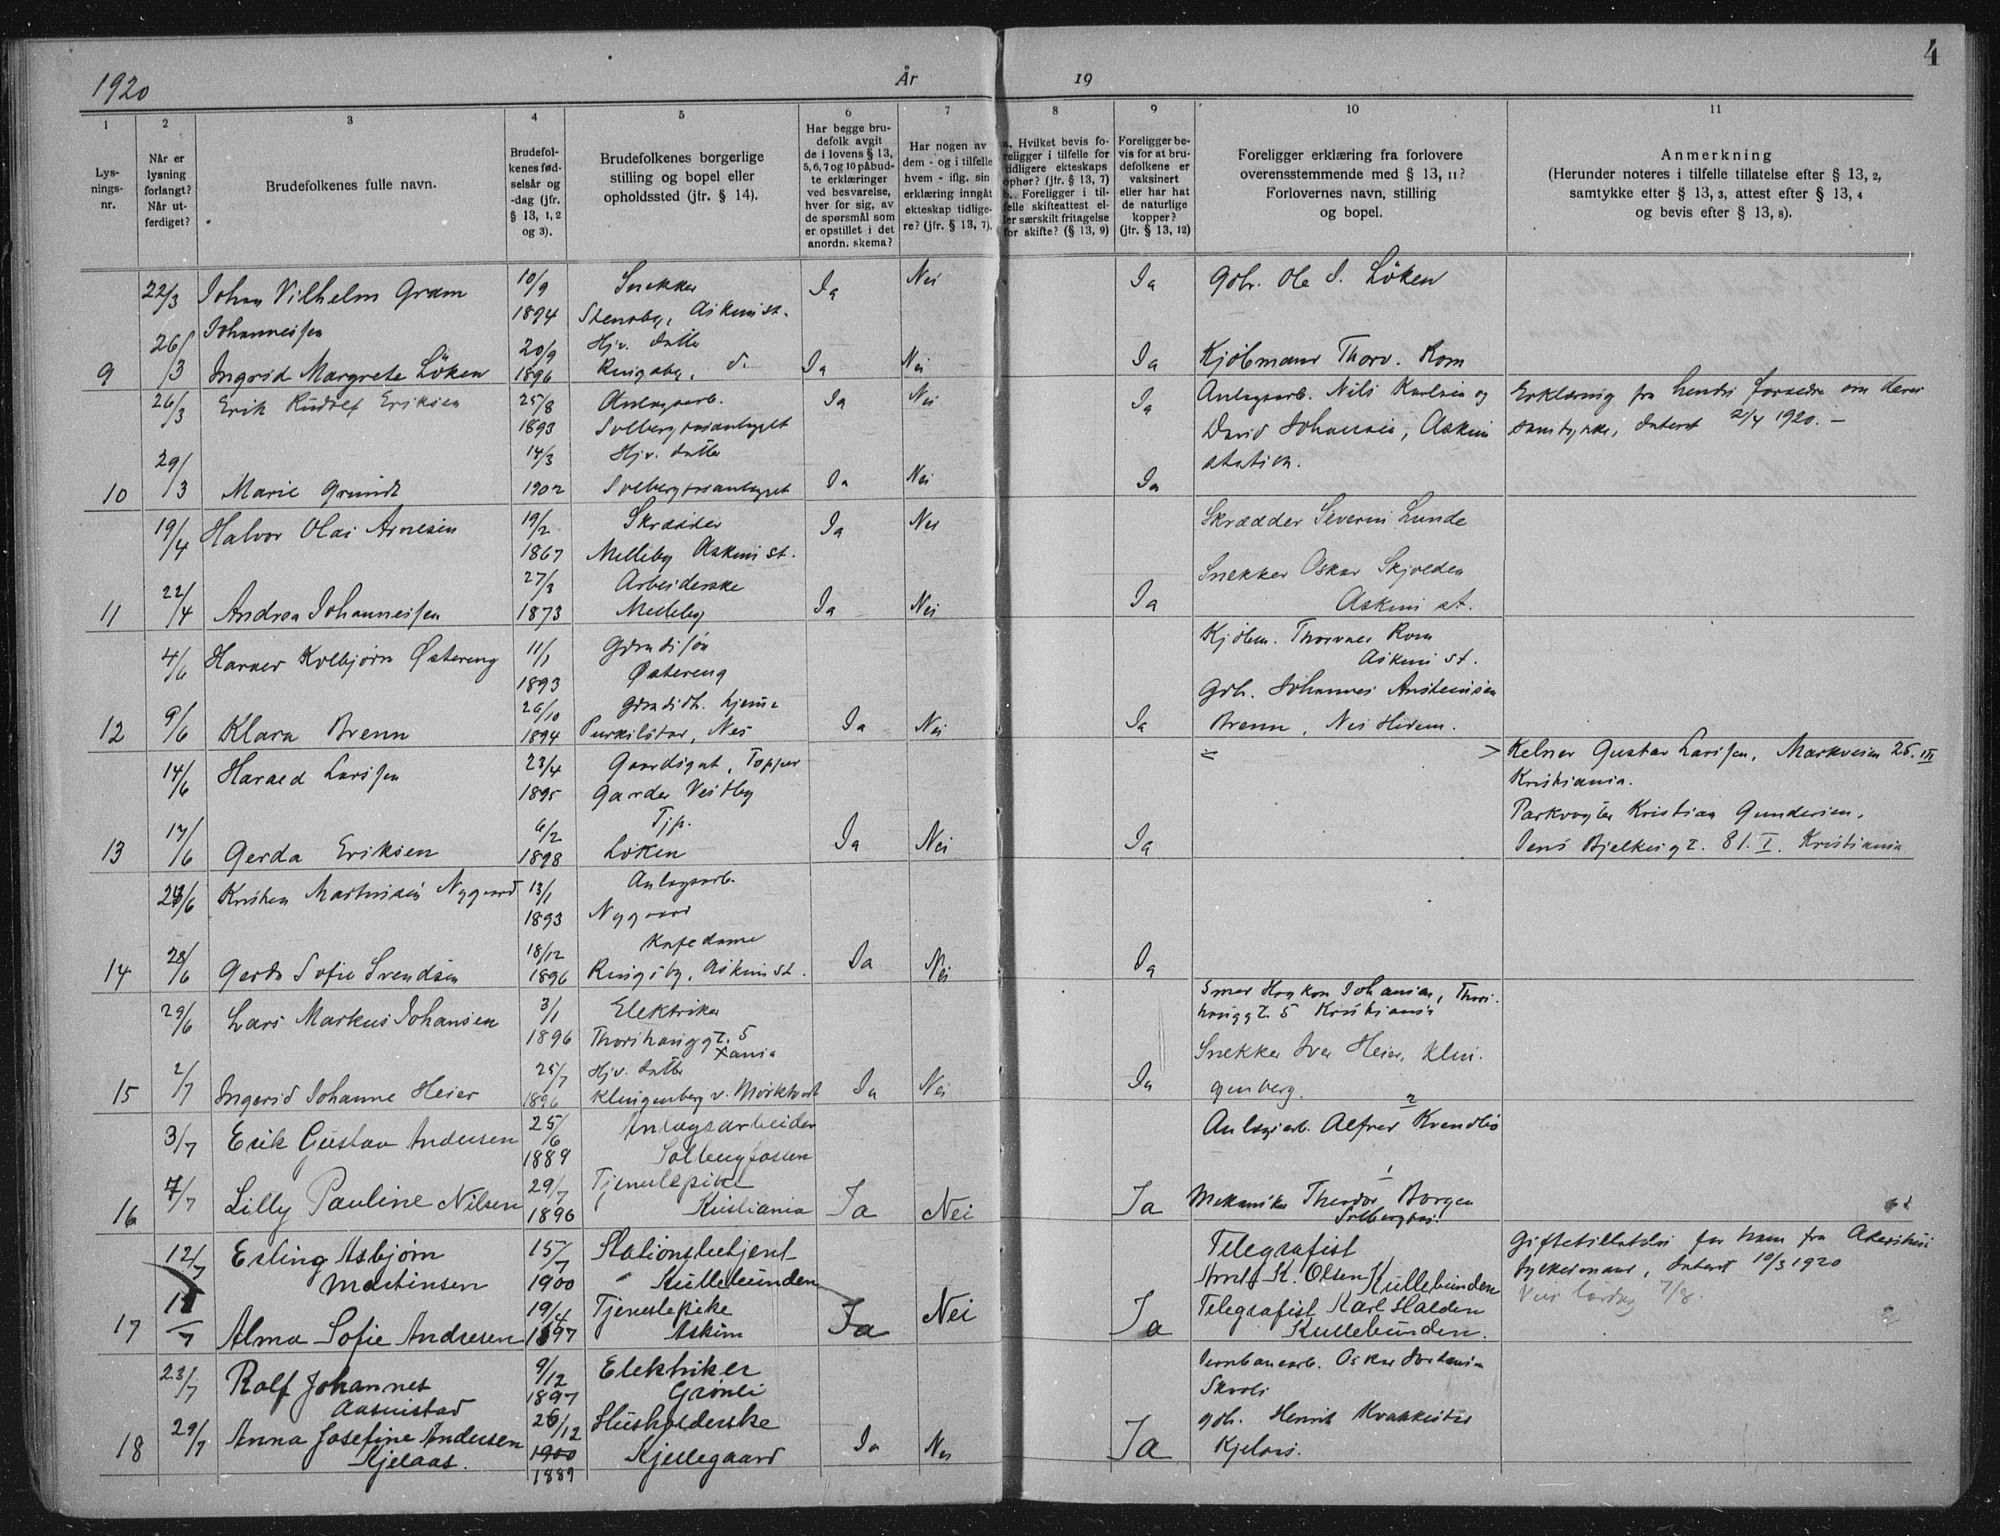 1920 År 19 4
1 2 3 4 5 6 7 8 9 10 11
Lysningsnr.
Når er lysning forlangt? Når utferdiget?
Brudefolkenes fulle navn.
Brudefolkenes fødselsår og -dag (jfr. § 13, 1, 2 og 3).
Brudefolkenes borgerlige stilling og bopel eller opholdssted (jfr. § 14).
Har begge brudefolk avgit de i lovens § 13, 5, 6, 7 og 10 påbudte erklæringer ved besvarelse, hver for sig, av de spørsmål som er opstillet i det anordn. skema?
Har nogen av dem - og i tilfelle hvem - iflg. sin erklæring inngått ekteskap tidligere? (jfr. § 13, 7).
a. Hvilket bevis foreligger i tilfelle for tidligere ekteskaps ophør? (jfr. § 13, 7) b. Foreligger i tilfelle skifteattest eller særskilt fritagelse for skifte? (§ 13, 9)
Foreligger bevis for at brudefolkene er vaksinert eller har hat de naturlige kopper? (jfr. § 13, 12)
Foreligger erklæring fra forlovere overensstemmende med § 13, 11? Forlovernes navn, stilling og bopel.
Anmerkning (Herunder noteres i tilfelle tillatelse efter § 13, 2, samtykke efter § 13, 3, attest efter § 13, 4 og bevis efter § 13, 8).
22/3 Johan Vilhelm Gram 10/9 Snekker Ja Nei Ja Gbr. Ole I. Löken
Johannessen 1894 Stensby, Askim st.
26/3 20/9 Hjv. datter
9 Ingrid Margrete Löken 1896 Ringsby, d. Ja Nei Ja Kjöbmann Thorv. Rom
26/3 Erik Rudolf Eriksen 25/8 Anlægsarb. Ja Nei Ja Anlægsarb. Nils Karlsen og Erklæring fra hendes foreldre om deres
1893 Solbergfosanlægget David Johansen, Askim samtykke, dateret 2/4 1920. —
29/3 14/3 Hjv. datter station.
10 Marie Grundt 1902 Solbergfosanlægget Ja Nei Ja
19/4 Halvor Olai Arnesen 19/2 Skrædder Ja Nei Skrædder Severin Lunde
1867 Melleby Askim st.
22/4 27/3 Arbeiderske Snekker Oskar Skjolden
11 Andrea Johannessen 1873 Melleby Ja Nei Ja Askim st.
4/6 Harald Kolbjørn Østereng 11/1 Grmdsön Kjöbm. Thorvald Rom
1893 Østereng Askim st.
9/6 26/10 Grmdsdt. hjemme Gbr. Johannes Anstensen
12 Klara Brenn 1894 Purkilstor, Nes Ja Nei Ja Brenn, Nes Hedem.
14/6 Harald Larssen 23/4 Gaardsgut, Topper = > Kelner Gustav Larssen, Markveien 25. III
1895 Garder Vestby Kristiania.
17/6 6/2 Tjp. Parkvogter Kristian Gundersen,
13 Gerda Eriksen 1898 Löken Ja Nei Ja Jens Bjelkesgt. 81. I. Kristiania
23/6 Kristian Martinsen Nygaard 13/1 Anlægsarb.
1893 Nygaard
28/6 18/12 Kafedame
14 Gerda Sofie Svendsen 1896 Ringsby, Askim st. Ja Nei Ja
29/6 Lars Markus Johansen 3/1 Elektriker Haakon Johansen, Thors-
1896 Thorshauggt. 5 hauggt. 5 Kristiania
2/7 25/7 Hjv. datter Xania Snekker Iver Heier, Klin-
15 Ingerid Johanne Heier 1896 Klingenberg v. Mörkfoss Ja Nei Ja genberg.
3/7 Erik Gustav Andersen 25/6 Anlægsarbeider 2 Anlægsarb. Alfred Kvendbö
1889 Solbergfossen
7/7 29/7 Tjenestepike 1
16 Lilly Pauline Nilsen 1896 Kristiania Ja Nei Ja Mekaniker Theodor Borgen
Solbergfos.
12/7 Erling Asbjørn 15/7 Stationsbetjent Telegrafist Giftetillatelse for ham fra Akershus
Martinsen 1900 Kullebunden Arndt K. Olsen Kullebunden fylkesmann, dateret 10/3 1920
19/4 Tjenestepike Telegrafist Karl Halden Vies lørdag 7/8.
17 Alma Sofie Andresen 1897 Askim Ja Nei Ja Kullebunden.
23/7 Rolf Johannes 9/12 Elektriker Jernbanearb. Oskar
Aasmistad 1897 Grønli
29/7 Anna Josefine Andersen 26/12 Husholderske Gbr. Henrik
18 Kjelaas. 1900 Kjellegaard Ja Nei Ja Kjelaas.
1889